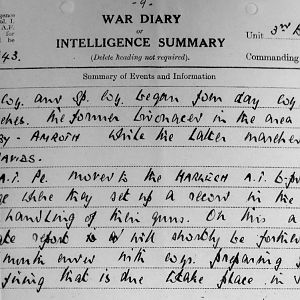 -4-
WAR DIARY
OR
INTELLIGENCE SUMMARY
(Delete heading not required).
Unit 3rd
Commanding
43.
Summary of Events and Information
Coy. and Sp. Coy. began four day
The former bivouaced in the area
AMROTH while the latter marched
DAVIDS.
A.T. Pl. moved to the HARLECH A.T.
where they set up a record in the
handling of their guns. On this a
report is will shortly be
with coys. preparing
firing that is due to take place in